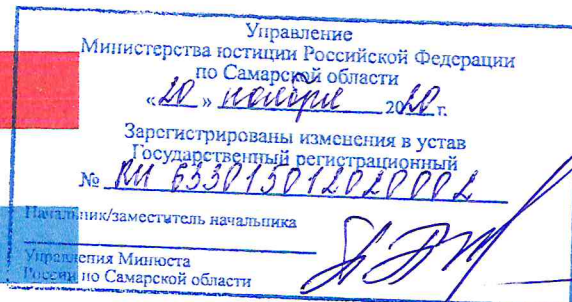 Управление
Министерства юстиции Российской Федерации
по Самарской области
«20» ноября 2020 г.
Зарегистрированы изменения в устав
Государственный регистрационный
№ RU 633013012020002
Начальник/заместитель начальника
Управления Минюста
России по Самарской области